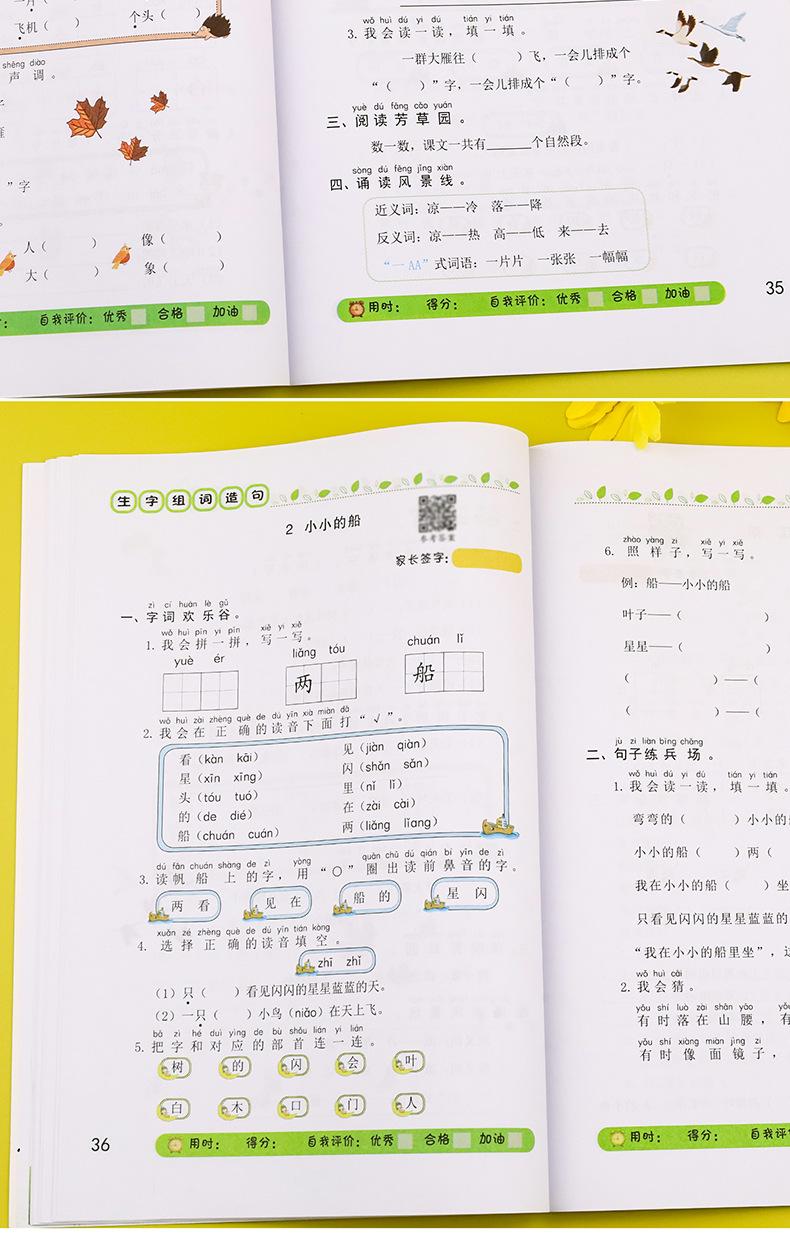 飞机（　　）　个头（　　）
shēng diào
声 调 。
”字
人（　　）　像（　　）
大（　　）　象（　　）
自我评价：优秀　合格　加油
wǒ huì dú yi dú　tián yi tián
3. 我 会 读 一 读 ，填 一 填 。
一群大雁往（　　）飞，一会儿排成个
“（　　）”字，一会儿排成个“（　　）”字。
yuè dú fāng cǎo yuán
三、阅 读 芳 草 园 。
数一数，课文一共有______个自然段。
sòng dú fēng jǐng xiàn
四、诵 读 风 景 线 。
近义词：凉——冷　落——降
反义词：凉——热　高——低　来——去
“一 AA”式词语：一片片　一张张　一幅幅
用时：　得分：　自我评价：优秀　合格　加油
35
生字组词造句
2 小小的船
参考答案
家长签字：
zì cí huān lè gǔ
一、字 词 欢 乐 谷 。
wǒ huì pīn yi pīn　xiě yi xiě
1. 我 会 拼 一 拼 ，写 一 写 。
yuè ér　liǎng tóu　chuán lǐ
两　船
wǒ huì zài zhèng què de dú yīn xià miàn dǎ
2. 我 会 在 正 确 的 读 音 下 面 打 “√”。
看（kàn　kāi）　见（jiàn　qiàn）
星（xīn　xīng）　闪（shǎn　sǎn）
头（tóu　tuó）　里（nǐ　lǐ）
的（de　dié）　在（zài　cài）
船（chuán　cuán）　两（liǎng　liang）
dú fān chuán shàng de zì　yòng　quān chū dú qián bí yīn de zì
3. 读 帆 船 上 的 字 ，用 “○” 圈 出 读 前 鼻 音 的 字 。
两 看　见 在　船 的　星 闪
xuǎn zé zhèng què de dú yīn tián kòng
4. 选 择 正 确 的 读 音 填 空 。
zhī　zhǐ
（1）只（　　）看见闪闪的星星蓝蓝的天。
（2）一只（　　）小鸟（niǎo）在天上飞。
bǎ zì hé duì yìng de bù shǒu lián yi lián
5. 把 字 和 对 应 的 部 首 连 一 连 。
树　的　闪　会　叶
白　木　口　门　人
36
用时：　得分：　自我评价：优秀　合格　加油
zhào yàng zi　xiě yi xiě
6. 照 样 子 ，写 一 写 。
例：船——小小的船
叶子——（　　）
星星——（　　）
（　　）—（
（　　）—（
jù zi liàn bīng chǎng
二、句 子 练 兵 场 。
wǒ huì dú yi dú　tián yi tián
1. 我 会 读 一 读 ，填 一 填 。
弯弯的（　　）小小的
小小的船（　　）两（
我在小小的船（　　）坐
只看见闪闪的星星蓝蓝的
“我在小小的船里坐”，
wǒ huì cāi
2. 我 会 猜 。
yǒu shí luò zài shān yāo　yǒu
有 时 落 在 山 腰 ，有
yǒu shí xiàng miàn jìng zi
有 时 像 面 镜 子 ，
用时：　得分：　自我评价：优秀